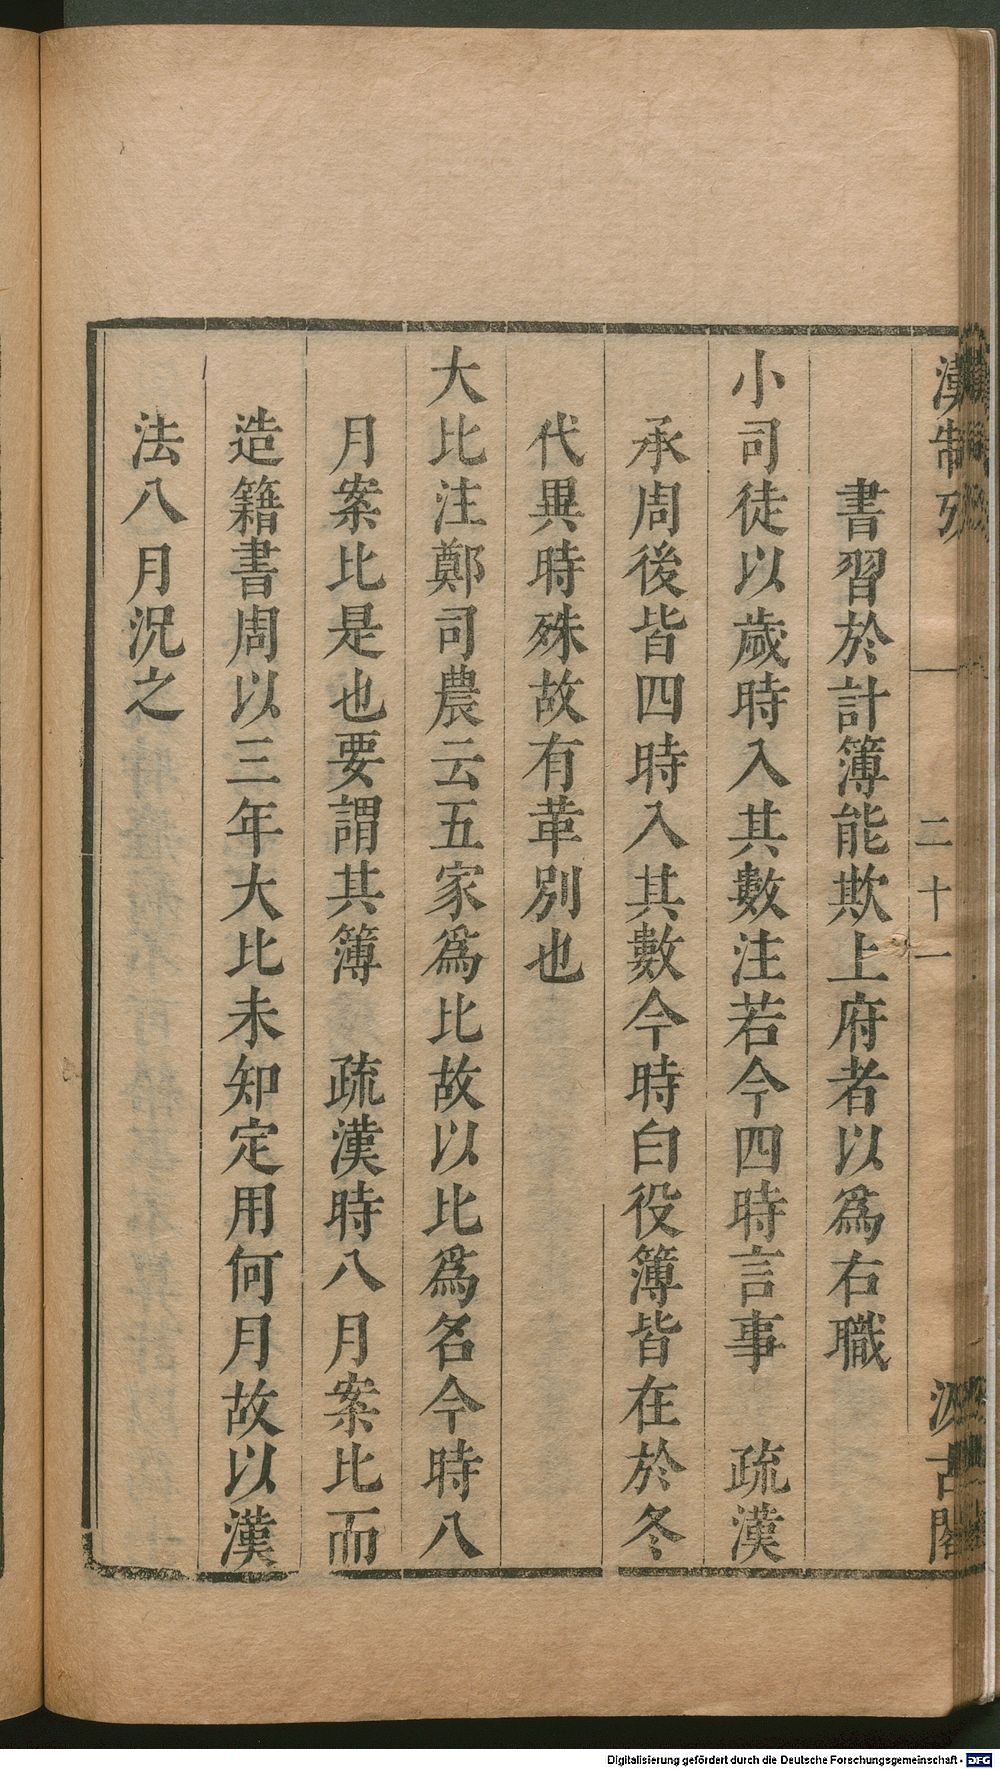 漢制攷
二十一
汲古閣
書習於計簿能欺上府者以爲右職
小司徒以歲時入其數注若今四時言事　疏漢
承周後皆四時入其數今時白役簿皆在於冬
代異時殊故有革別也
大比注鄭司農云五家爲比故以比爲名今時八
月案比是也要謂其簿　疏漢時八月案比而
造籍書周以三年大比未知定用何月故以漢
法八月況之
Digitalisierung gefördert durch die Deutsche Forschungsgemeinschaft - DFG